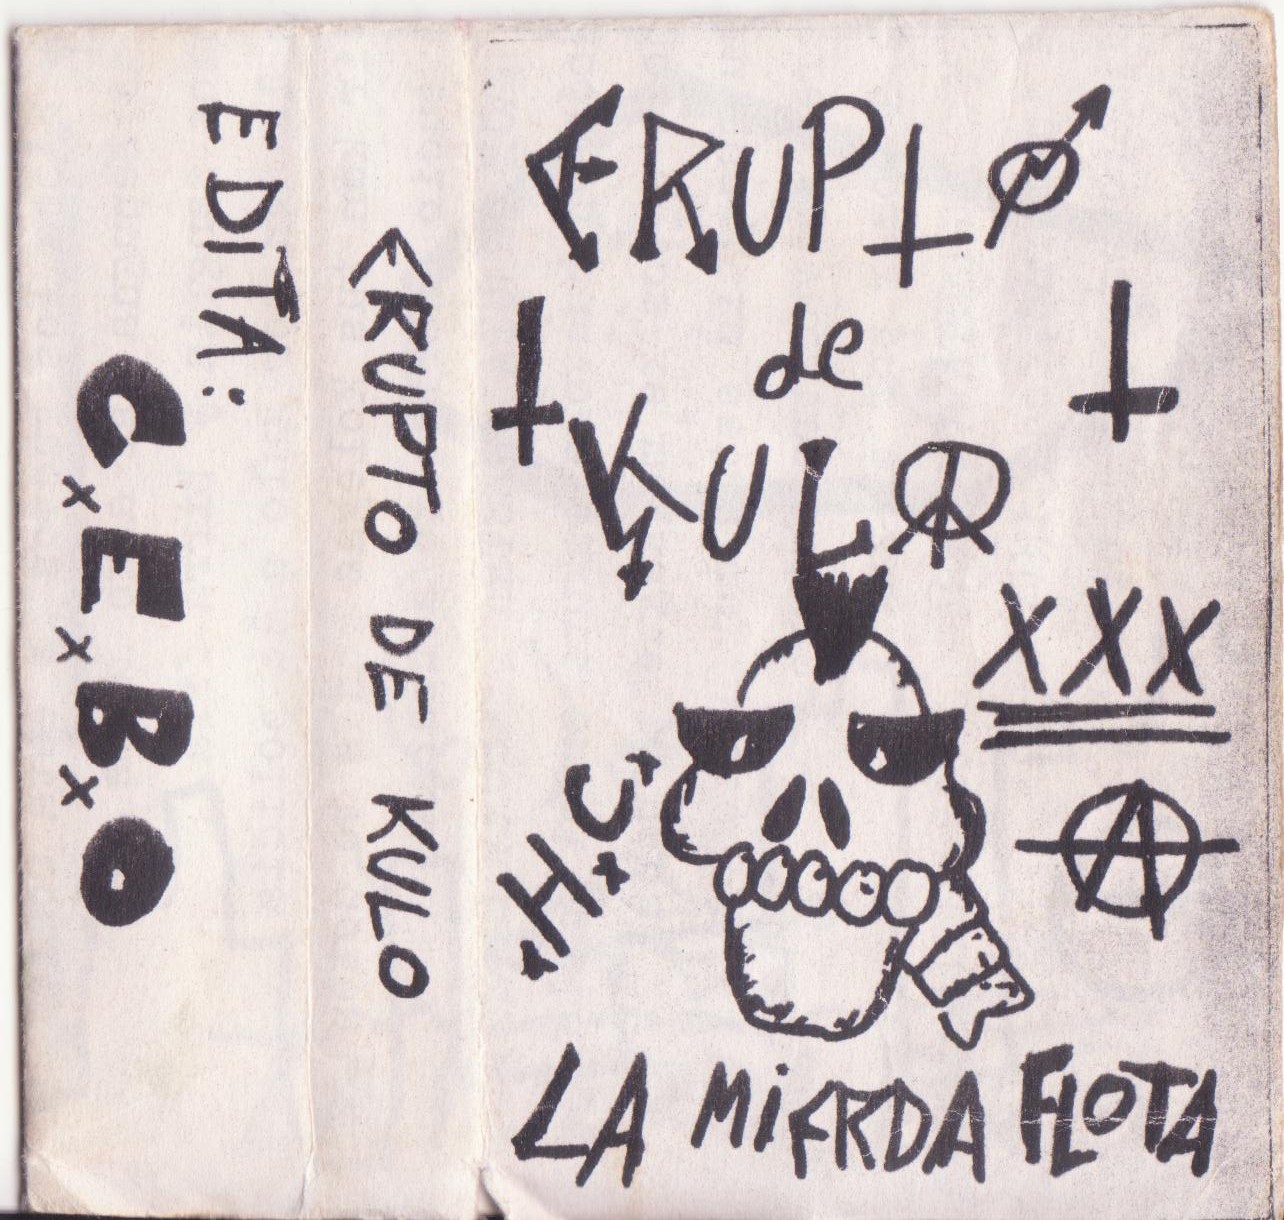 ERUPTO
de
KULO
XXX
A
H.C.
LA MiERDA FLOTA
ERUPTO DE KULO
EDiTA:
C.E.B.O